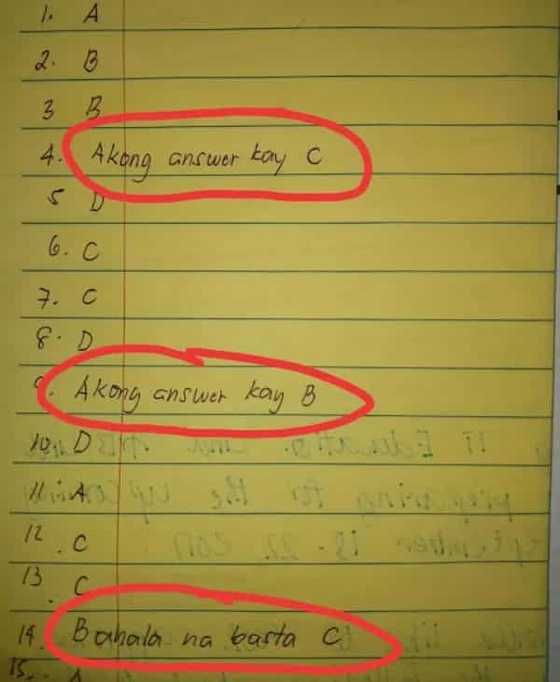 1. A
2. B
3 B
4. Akong answer kay C
5 D
6. C
7. C
8. D
9. Akong answer kay B
10. D
11. A
12. C
13. C
14. Bahala na basta C
15. A